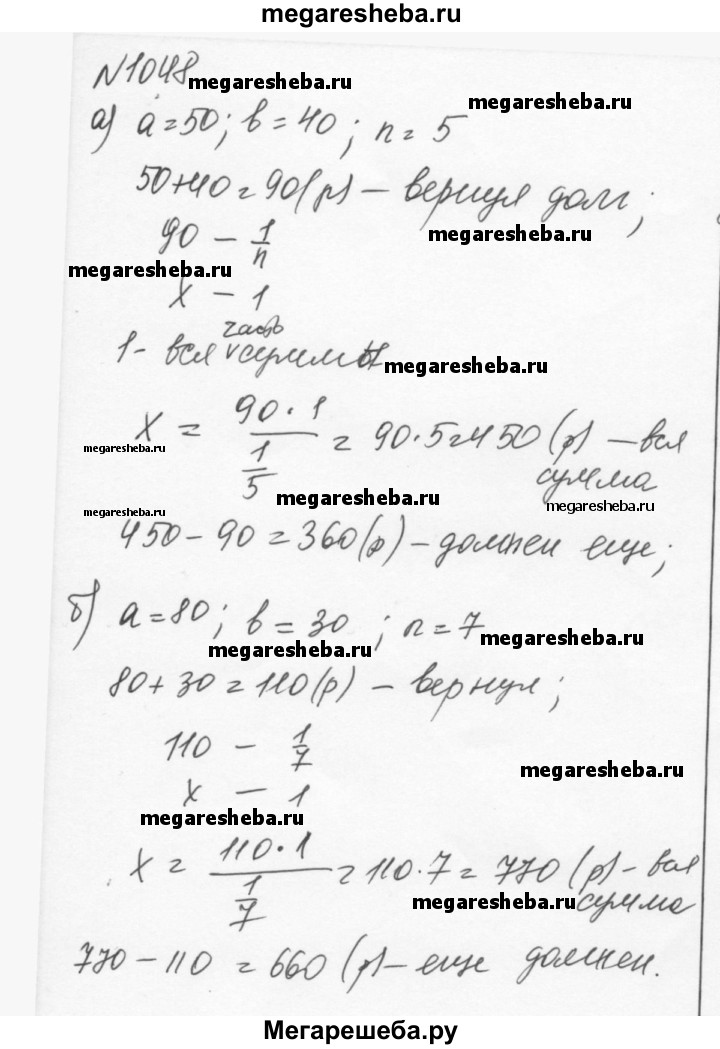 megaresheba.ru
N1048
megaresheba.ru
megaresheba.ru
а) a = 50; b = 40; n = 5
50+40 = 90(р) – вернул долг;
megaresheba.ru
90 – 1/n
megaresheba.ru
x – 1
часть
1 - вся суммы
megaresheba.ru
x = 90·1 / 1/5 = 90·5=450 (р) – вся
сумма
megaresheba.ru
megaresheba.ru
megaresheba.ru
megaresheba.ru
450 – 90 = 360(р) – должен еще;
б) a = 80; b = 30; n = 7
megaresheba.ru
80 + 30 = 110(р) – вернул;
110 – 1/7
megaresheba.ru
x – 1
megaresheba.ru
x = 110·1 / 1/7 = 110·7 = 770 (р) – вся
megaresheba.ru
сумма
770 – 110 = 660 (р) – еще должен.
Мегарешеба.ру